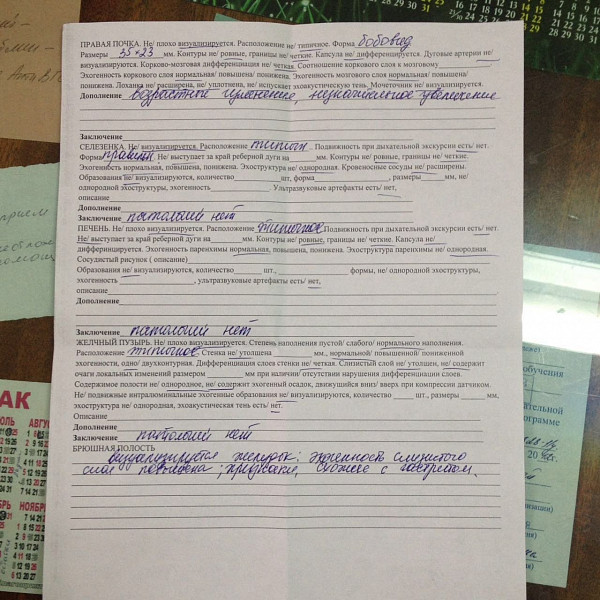 ПРАВАЯ ПОЧКА. Не/ плохо визуализируется. Расположение не/ типичное. Форма бобовид
Размеры 35×23 мм. Контуры не/ ровные, границы не/ четкие. Капсула не/ дифференцируется. Дуговые артерии не/
визуализируются. Корково-мозговая дифференциация не/ четкая. Соотношение коркового слоя к мозговому
Эхогенность коркового слоя нормальная/ повышена/ понижена. Эхогенность мозгового слоя нормальная/ повышена/
понижена. Лоханка не/ расширена, не/ уплотнена, не/ испускает эхоакустическую тень. Мочеточник не/ визуализируется.
Дополнение возрастные изменения, незначительное увеличение
Заключение
СЕЛЕЗЕНКА. Не/ визуализируется. Расположение типичн. Подвижность при дыхательной экскурсии есть/ нет.
Форма правильн. Не/ выступает за край реберной дуги на мм. Контуры не/ ровные, границы не/ четкие.
Эхогенность нормальная, повышена, понижена. Эхоструктура не/ однородная. Кровеносные сосуды не/ расширены.
Образования не/ визуализируются, количество шт., форма , размеры мм, не/
однородной эхоструктуры, эхогенность . Ультразвуковые артефакты есть/ нет,
описание
Дополнение
Заключение патологий нет
ПЕЧЕНЬ. Не/ плохо визуализируется. Расположение типичное. Подвижность при дыхательной экскурсии есть/ нет.
Не/ выступает за край реберной дуги на мм. Контуры не/ ровные, границы не/ четкие. Капсула не/
дифференцируется. Эхогенность паренхимы нормальная, повышена, понижена. Эхоструктура паренхимы не/ однородная.
Сосудистый рисунок ( описание)
Образования не/ визуализируются, количество шт., формы, не/ однородной эхоструктуры,
эхогенность , ультразвуковые артефакты есть/ нет,
описание
Дополнение
Заключение патологий нет
ЖЕЛЧНЫЙ ПУЗЫРЬ. Не/ плохо визуализируется. Степень наполнения пустой/ слабого/ нормального наполнения.
Расположение типичное. Стенка не/ утолщена мм., нормальной/ повышенной/ пониженной
эхогенности, одно/ двухконтурная. Дифференциация слоев стенки не/ четкая. Слизистый слой не/ утолщен, не/ содержит
очаги локальных изменений размером мм при наличии/ отсутствии нарушения дифференциации слоев.
Содержимое полости не/ однородное, не/ содержит эхогенный осадок, движущийся вниз/ вверх при компрессии датчиком.
Не/ подвижные интралюминальные эхогенные образования не/ визуализируются, количество шт., размеры мм,
эхоструктура не/ однородная, эхоакустическая тень есть/ нет.
Описание
Дополнение
Заключение патологий нет
БРЮШНАЯ ПОЛОСТЬ
визуализируется желудок: эхогенность слизистого
слоя повышена; признаки, схожие с гастритом.
обучения
ательной
рограмме
20
изации)
АК
АВГУС
НОЯБР